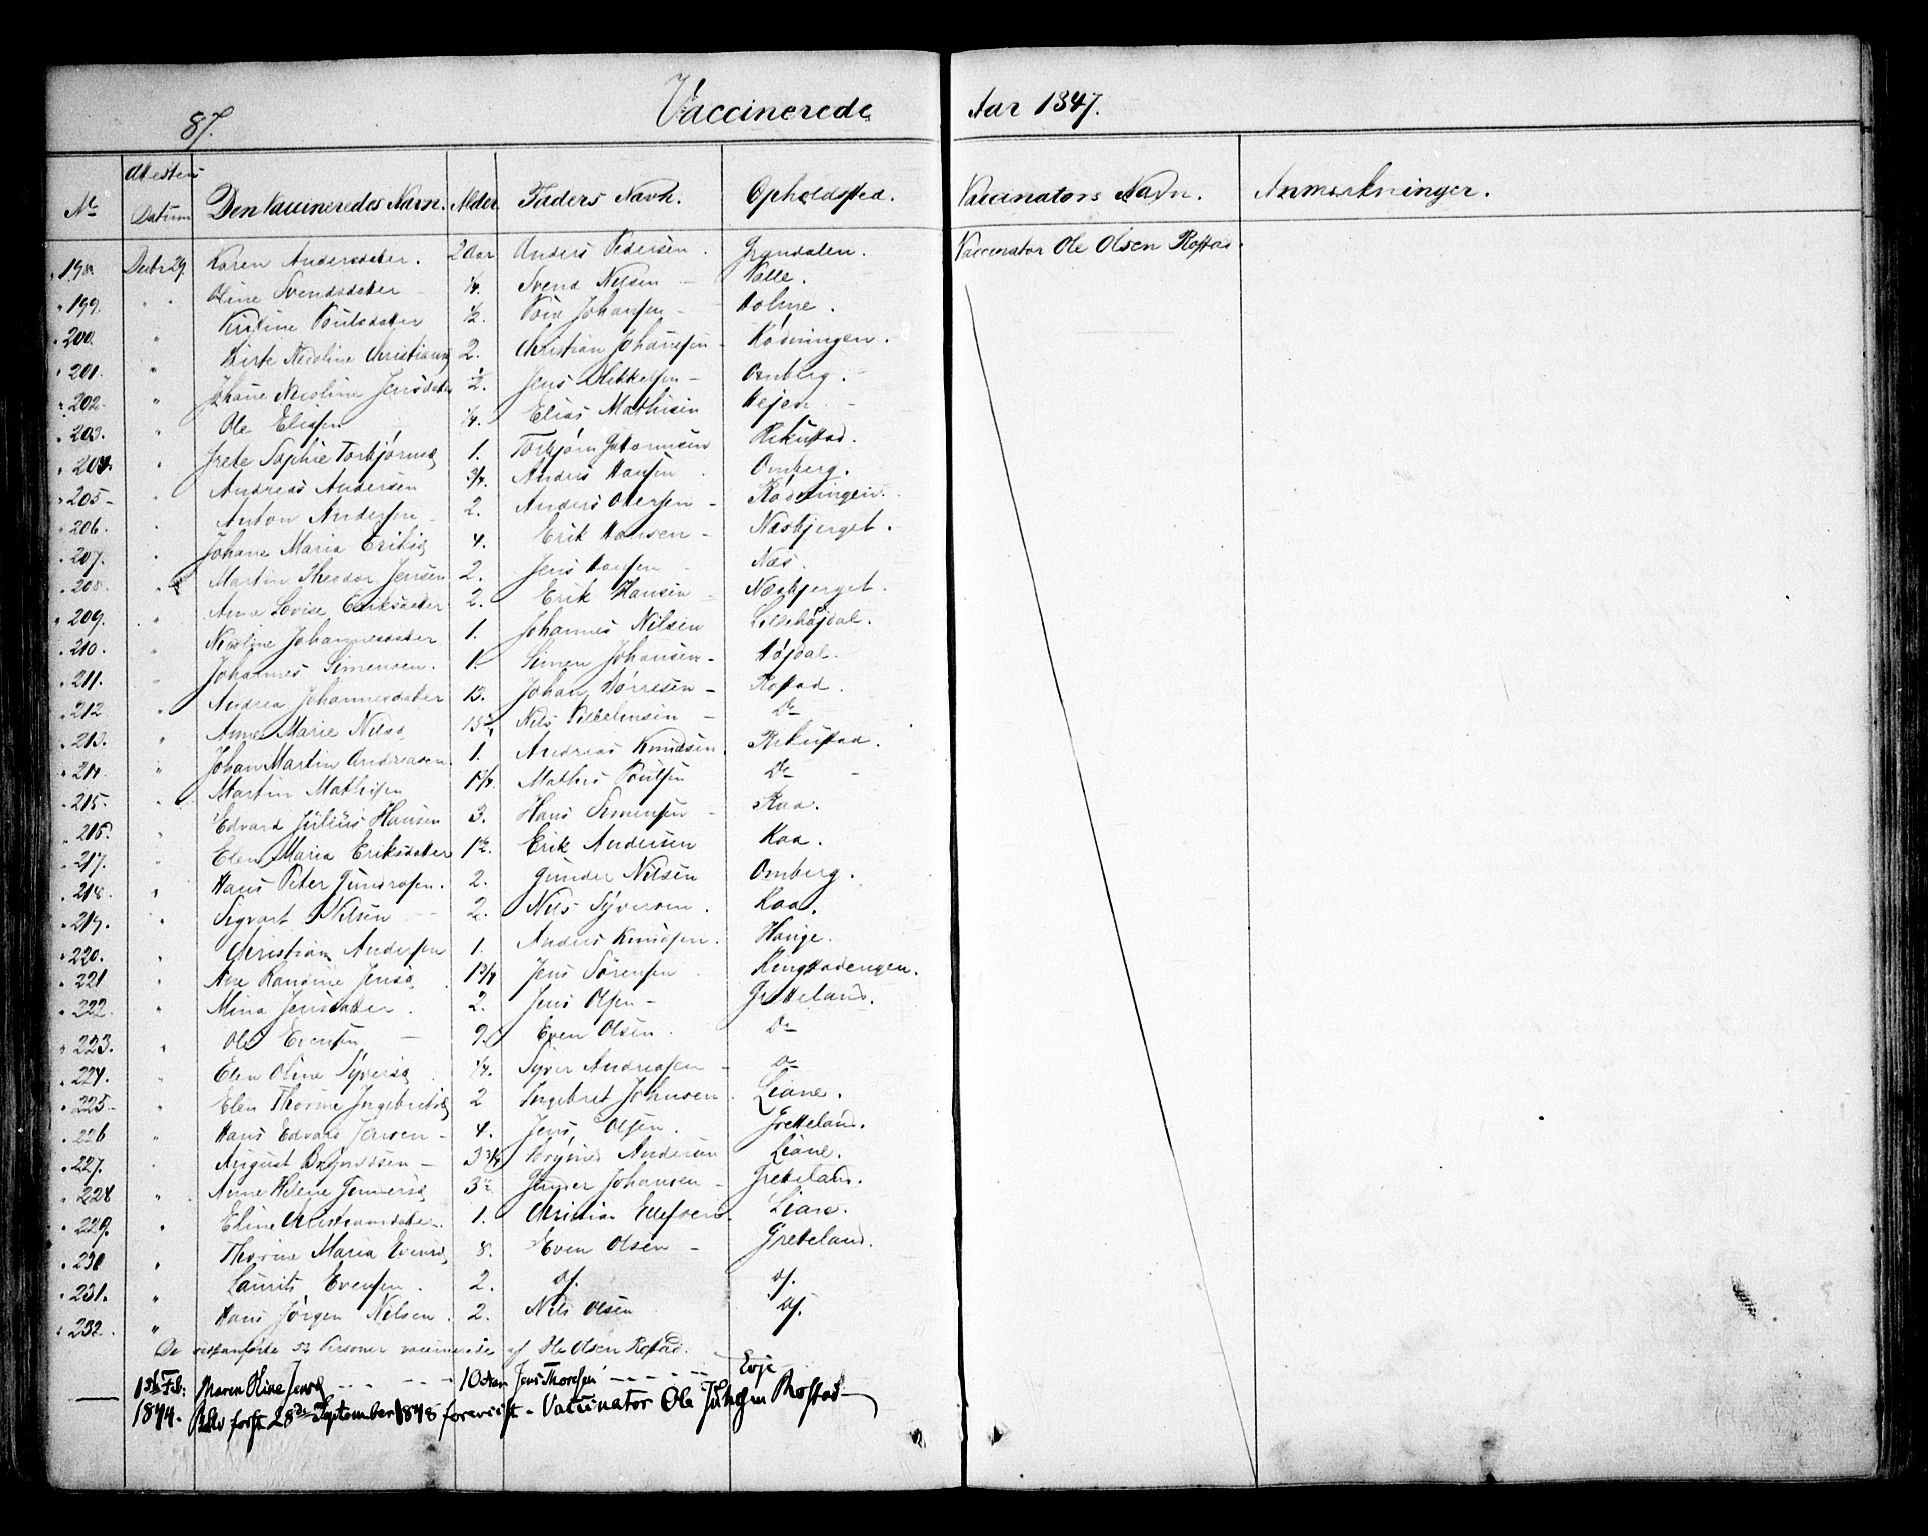 87.
Vaccinerede Aar 1847.
No Attestens Datum Den Vaccineredes Navn. Alder. Faders Navn. Opholdssted. Vaccinators Navn. Anmærkninger.
198 Decbr 29 Karen Andersdatter. 2 Aar Anders Pedersen. Grøndalen. Vaccinator Ole Olsen Rostad.
" 199. " " Oline Svendsdatter 1/4. Svend Nilsen - Valle.
" 200. " Poulsdatter 1/2. Johansen - Holme.
" 201. " Nicoline 2. Christian Johansen - Kødningen.
" 202. " Nicoline Jensdatter 1/2. Jens Mikkelsen - Omberg.
" 203. " Ole Eliasen 1/4. Elias Mathisen Hejen -
" 204. " Grete Sophie Torbjørnsd 1. Torbjørn Guttormsen Rikustad.
" 205 - " Andreas Andersen 3/4. Anders Hansen. Omberg.
" 206. " Anton Andersen - 2. Anders - Kødningen.
" 207. " Johane Maria Eriksd 4. Erik Hansen - Næsbjerget.
" 208. " Martin Theodor Jensen 2. Jens Hansen - Næs.
" 209. " Anne Lovise Eriksdatter 2. Erik Hansen - Næsbjerget.
" 210. " Nicoline Johannesdatter 1. Johannes Nilsen Lillehøjdal.
" 211. " Johannes Simensen. 1. Simen Johansen - Højdal.
" 212 " Andrea Johannesdatter 13. Johan Tørresen - Rostad.
" 213. " Anne Marie Nilsd. Nils - Do
" 214 " Johan Martin Andreasen 1. Andreas Knudsen. Rikustad.
" 215. " Martin Mathisen 1 3/4. Mathis Poulsen Do -
" 216. " Edvard Julius Hansen 3. Hans Simensen - Kaa.
" 217. " Elen Maria Eriksdatter 1 1/2. Erik Andersen Kaa.
" 218. " Hans Peter. 2. Gunder Nilsen Omberg.
" 219. " Sigvart Nilsen - 2. Nils Syversen. Kaa.
" 220. " Christian Andersen 1. Anders Knudsen. Hauge.
" 221 " Ane Randine Jensd. 1 3/4 Jens Sørensen.
" 222. " Mina Jensdatter. 2. Jens Olsen - Gretteland.
" 223. " Ole Evensen - 9. Even Olsen. Do
" 224. " Elen Oline Syversd 1/4. Syver Andreasen - Do
" 225 - " Elen Thorine Ingebretsd 2 Ingebret Johnsen. Liane.
" 226 " Hans Edvard Jensen - 4. Jens Olsen. Gretteland.
" 227. " August - 3 3/4 Andersen Liane.
" 228 " Anne Helene Gundersd 3 1/2 Gunder Johansen - Gretteland.
" 229. " Eline Christiansdatter. 1. Christian Ellefsen - Liane.
" 230 " Thorine Maria Evensd. 8. Even Olsen - Gretteland.
" 231. " Laurits Evensen. 2. do. do.
" 232. " Hans Jørgen Nilsen. 2. Nils Olsen do.
De Personer vaccinerede af Ole Olsen Rostad.
13de Feb: Maren Oline Jensd - - - - 10 Aar Jens Thoresen - - - - - Evje
1844. 28de September 1848 forevist - Vaccinator Ole Rostad -